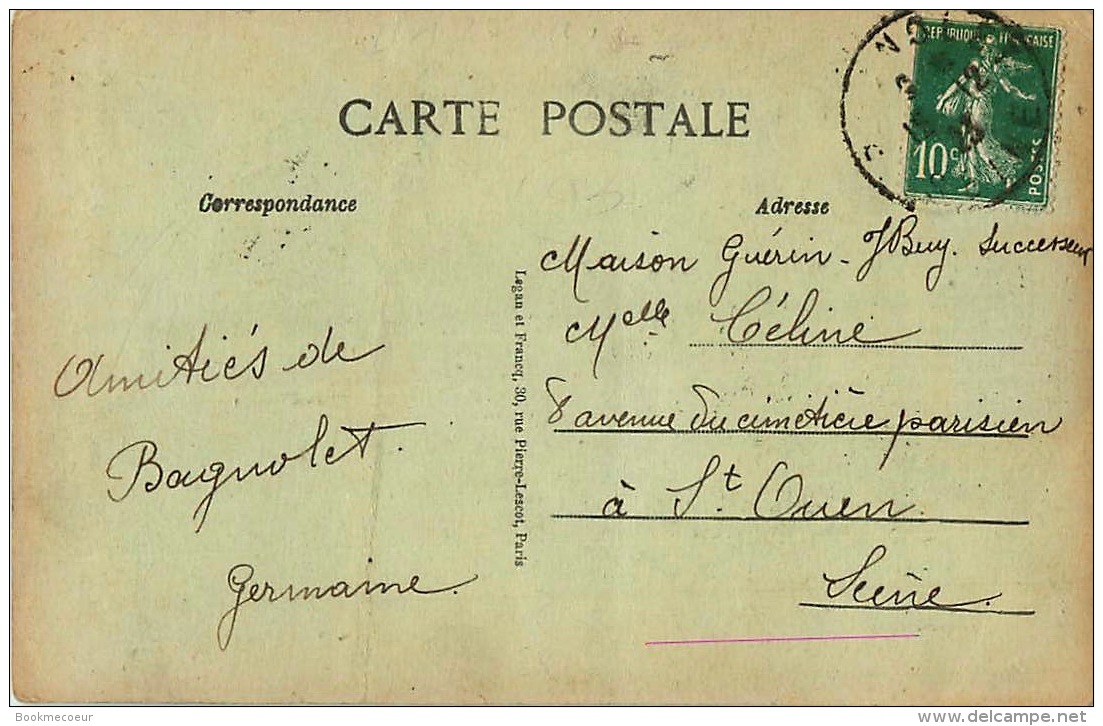 CARTE POSTALE
REPUBLIQUE FRANÇAISE
10c
POSTES
Correspondance
Amitiés de
Bagnolet.
Germaine.
Legan et Francq, 30, rue Pierre-Lescot, Paris
Adresse
Maison Guérin - J Buy. Successeur
Melle Céline
8 avenue du cimetière parisien
à St Ouen.
Seine.
Bookmecoeur
delcampe.net